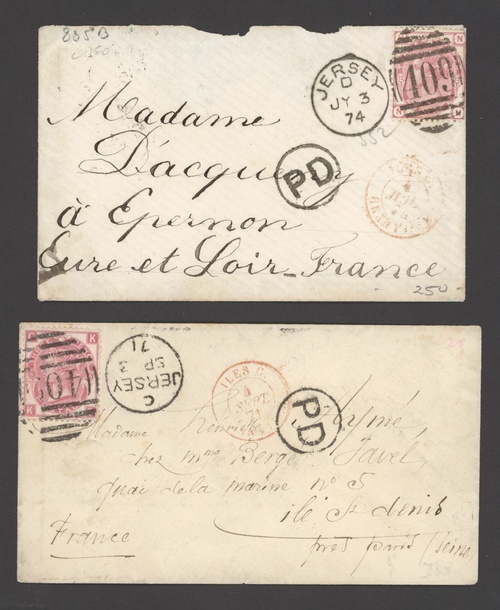 885B
JERSEY
D
JY 3
74
409
N
N
M
Madame
D'acquevy
PD
à Epernon
Eure et Loir-France
250-
P
K
409
C
JERSEY
SP 3
71
ILES C.
4
SEPT.
71
PD
Madame Henriette Aymé
chez mme Berge Javel
quai de la marine no 5
ile St denis
France
près paris (Seine)